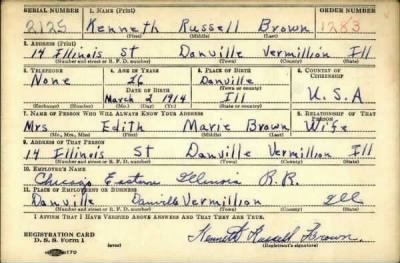 SERIAL NUMBER 1. NAME (Print) ORDER NUMBER
2125 Kenneth Russell Brown 1283
(First) (Middle) (Last)
2. ADDRESS (Print)
14 Illinois St Danville Vermillion Ill
(Number and street or R. F. D. number) (Town) (County) (State)
3. TELEPHONE 4. AGE IN YEARS 5. PLACE OF BIRTH 6. COUNTRY OF CITIZENSHIP
None 26 Danville
DATE OF BIRTH (Town or county)
March 2 1914 Ill U.S.A
(Exchange) (Number) (Mo.) (Day) (Yr.) (State or country)
7. NAME OF PERSON WHO WILL ALWAYS KNOW YOUR ADDRESS 8. RELATIONSHIP OF THAT PERSON
Mrs Edith Marie Brown Wife
(Mr., Mrs., Miss) (First) (Middle) (Last)
9. ADDRESS OF THAT PERSON
14 Illinois St Danville Vermillion Ill
(Number and street or R. F. D. number) (Town) (County) (State)
10. EMPLOYER'S NAME
Chicago Eastern Illinois R.R.
11. PLACE OF EMPLOYMENT OR BUSINESS
Danville Danville Vermillion Ill
(Number and street or R. F. D. number) (Town) (County) (State)
I AFFIRM THAT I HAVE VERIFIED ABOVE ANSWERS AND THAT THEY ARE TRUE.
REGISTRATION CARD Kenneth Russell Brown.
D. S. S. Form 1 (over) (Registrant's signature)